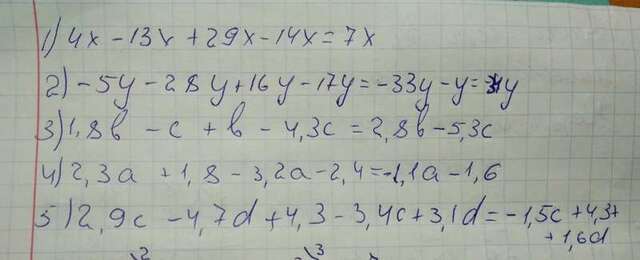 1) 4x - 13x + 29x - 14x = 7x
2) - 5y - 28y + 16y - 17y = -33y - y = y
3) 1,8b - c + b - 4,3c = 2,8b - 5,3c
4) 2,3a + 1,8 - 3,2a - 2,4 = -1,1a - 1,6
5) 2,9c - 4,7d + 4,3 - 3,4c + 3,1d = -1,5c + 4,3+
+ 1,6d
2 3